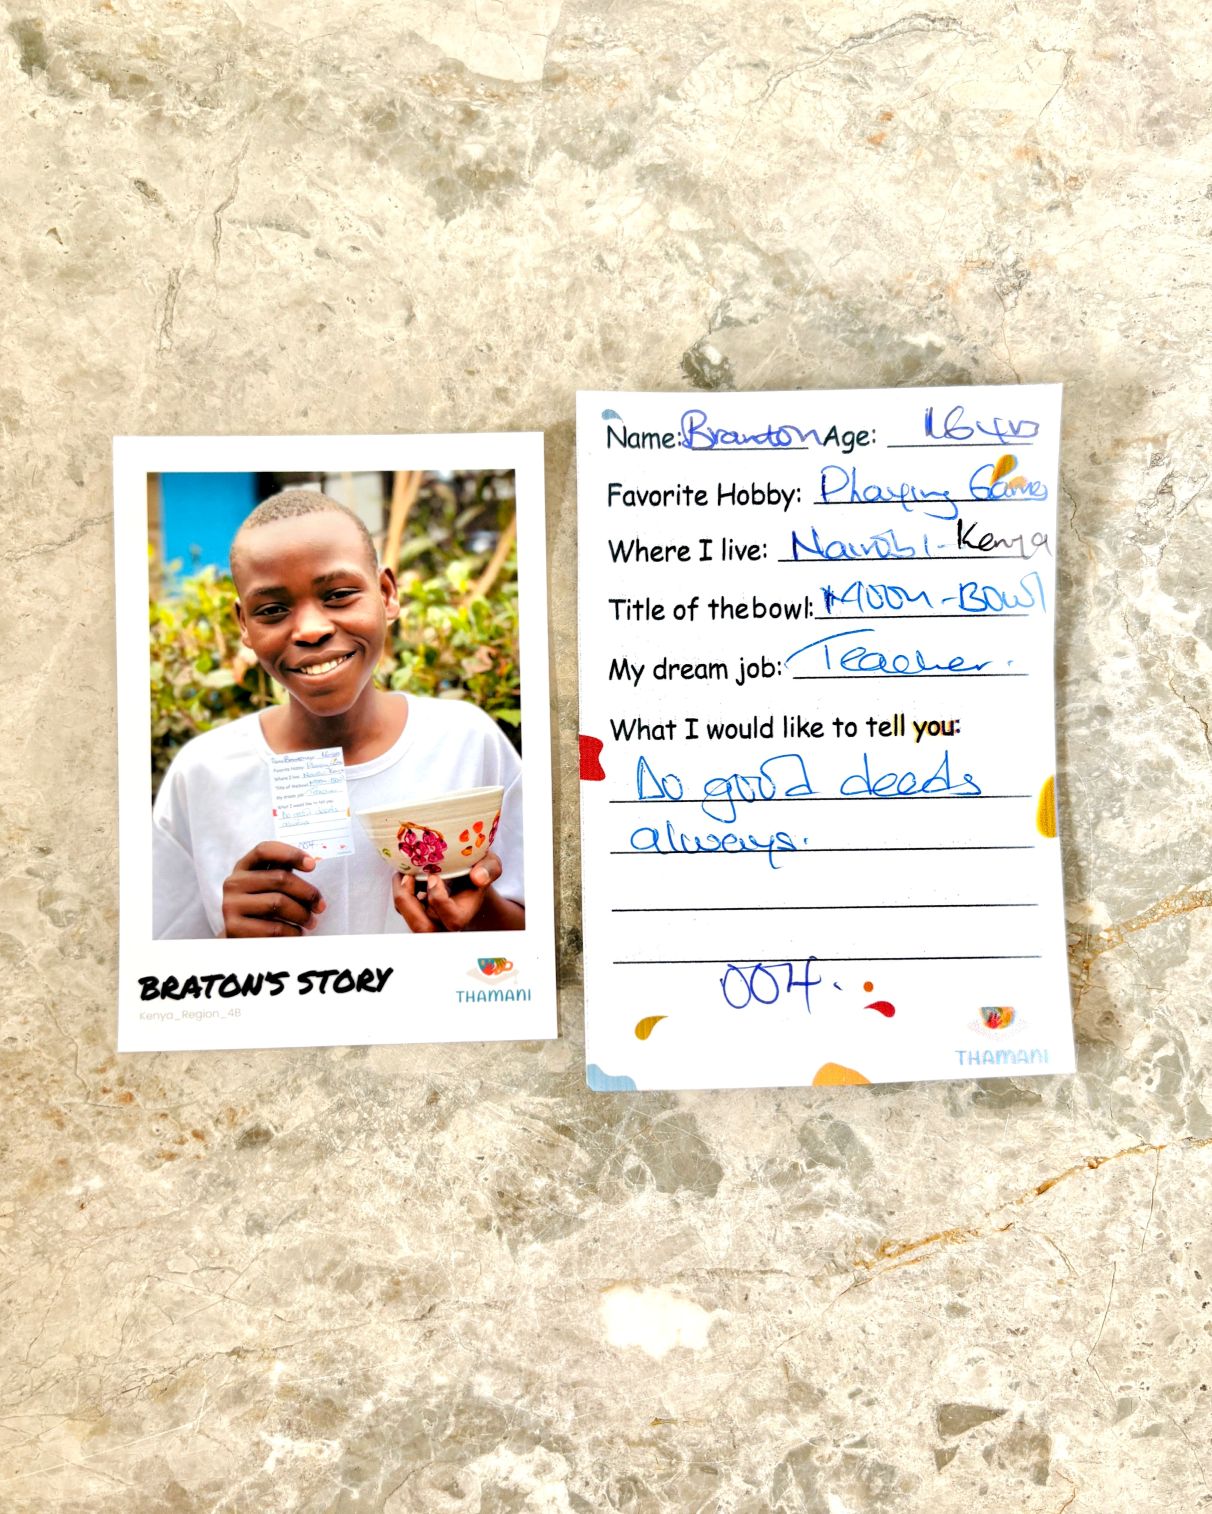 BRATON'S STORY
Kenya_Region_4B
THAMANI
Name: Branton Age: 16 yrs
Favorite Hobby: Playing Games
Where I live: Nairobi - Kenya
Title of the bowl: Moon-Bowl
My dream job: Teacher.
What I would like to tell you:
Do good deeds
always.
004.
THAMANI